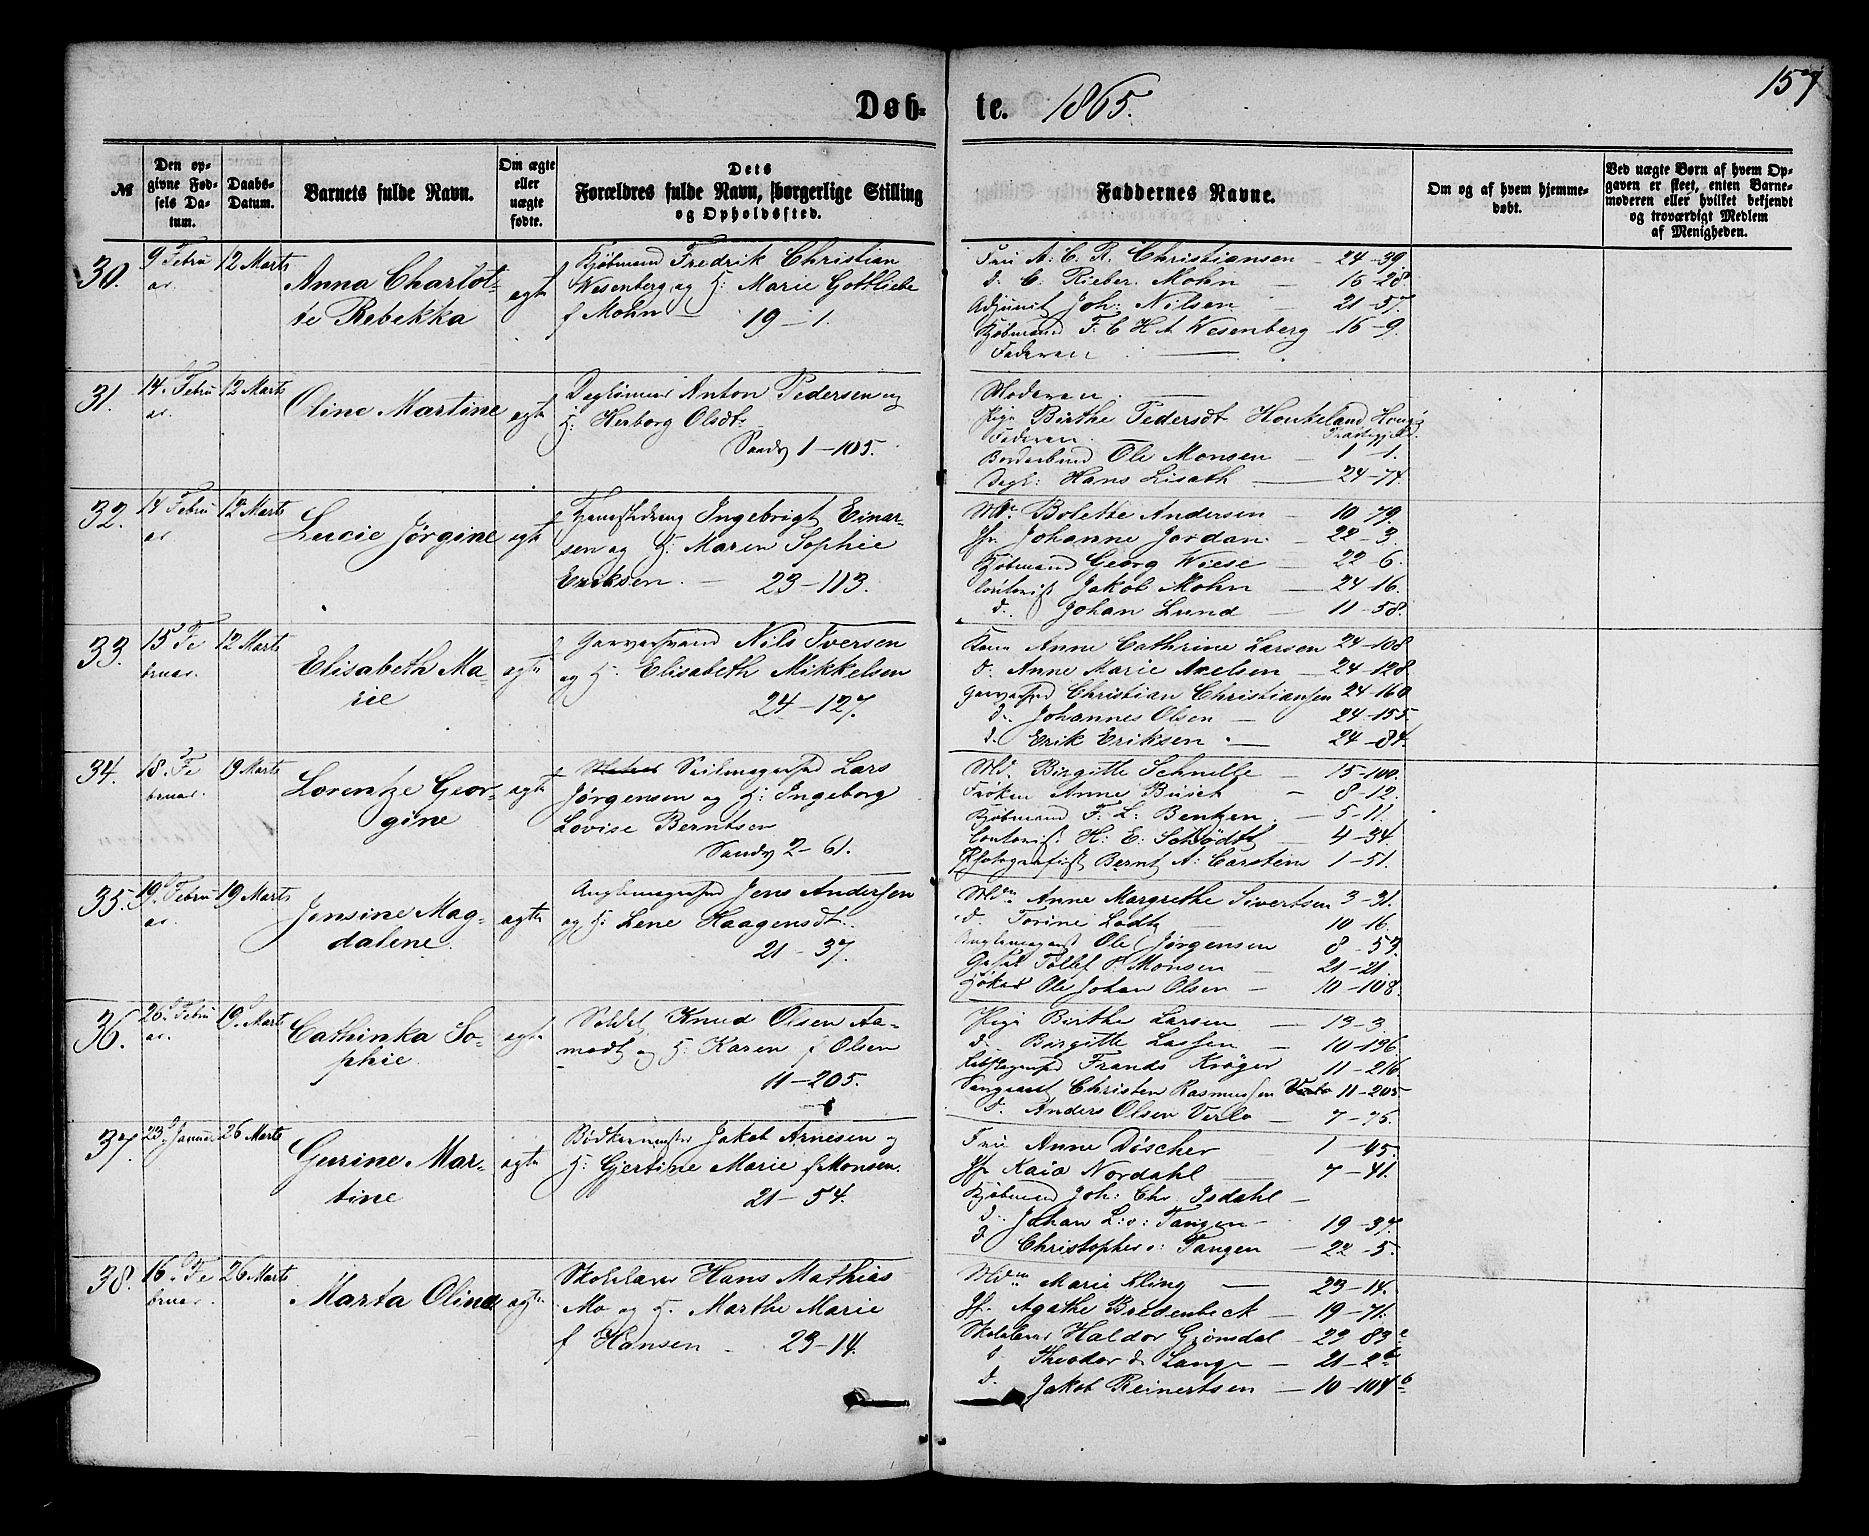 157
Døb- te. 1865.
№
Den opgivne Fødsels Datum.
Daabs-Datum.
Barnets fulde Navn.
Om ægte eller uægte fødte.
Dets Forældres fulde Navn, borgerlige Stilling og Opholdssted.
Faddernes Navne.
Om og af hvem hjemmedøbt.
Ved uægte Børn af hvem Opgaven er skeet, enten Barnemoderen eller hvilket bekjendt og troværdigt Medlem af Menigheden.
30. 9 Februar. 12 Marts Anna Charlotte Rebekka ægte
Kjøbmand Fredrik Christian
Wesenberg og H: Marie Gottliebe
f Mohn — 19-1.
Fru A. C. R. Christiansen — 24-39
d. C. Rieber Mohn — 16-28
Adjunct Joh: Nilsen — 21-57.
Kjøbmand F. C H A Wesenberg — 16-9.
Faderen
31. 14. Februar. 12 Marts Oline Martine ægte
Daglønner Anton Pedersen og
H: Herborg Olsdt:
Sandv 1-105.
Moderen
Pige Birthe Pedersdt Haukeland
Faderen.
Ole Monsen — 1-1.
Dagl: Hans Lisath — 24-74.
32. 14 Februar 12 Marts Lucie Jørgine ægte
Ingebrigt Einar-
sen og H: Maren Sophie
Eriksen. — 23-113.
Md Bolette Andersen — 10-79.
Jfr Johanne Jordan — 22-3.
Kjøbmand Georg Wiese — 22-6.
Contorist Jakob Mohn — 24-16.
d. Johan Lund — 11-58.
33. 15 Februar. 12 Marts Elisabeth Marie ægte
Garversvend Nils Iversen
og H. Elisabeth Mikkelsen
24-127.
Kone Anne Cathrine Larsen 24-108
d. Anne Marie Axelsen — 24-128.
Garversvd Christian Christiansen 24-160
d. Johannes Olsen — 24-155.
d. Erik Eriksen — 24-84.
34. 18. Februar. 19 Marts Lorentze Georgine ægte
Seilmagersvd Lars
Jørgensen og H: Ingeborg
Lovise Berntsen
Sandv 2-61.
Md. Birgitte Schnelle — 15-100.
Frøken Anne Busch — 8-12.
Kjøbmand F. L. Bentzen — 5-11.
Contorist H. E. Schødt — 4-34.
Fotografist Bernt A: Carstein 1-51.
35. 19. Februar. 19 Marts Jensine Magdalene. ægte
Jens Andersen
og H: Lene Haagensdt.
21-37.
Mdm Anne Margrethe Sivertsen 3-31.
d. Torine Lodt — 10-16.
Ole Jørgensen 8-53.
Tollef O. Monsen — 21-21.
Ole Johan Olsen — 10-108.
36. 26. Februar. 19. Marts Cathinka Sophie. ægte
Soldat Knud Olsen Aa-
modt og H: Karen f Olsen
11-205.
Pige Birthe Larsen — 13-3.
d. Birgitte Lassen — 10-196.
Frands Krøger — 11-216.
Christen Rasmussen 11-205
d. Anders Olsen Verlo — 7-75.
37. 23. Januar 26 Marts Gurine Martine ægte
Bødkermester Jakob Arnesen og
H: Gjertine Marie f Monsen.
21-54.
Fru Anne Döscher — 1-45.
Jfr Kaia Nordahl — 7-41.
Kjøbmand Joh: Chr. Isdahl —
d. Johan L: v: Tangen — 19-37.
d Christopher v: Tangen — 22-5.
38. 16. Februar. 26 Marts Marta Olina ægte
Skolelærer Hans Mathias
Mo og H. Marthe Marie
f Hansen — 23-14.
Mdm Marie Kling — 23-14.
Jfr. Agathe Bredenbeck — 19-71.
Skolelærer Haldor Gjønsdal — 23 83 c
d Theodor d. Lange — 21-2 b
d. Jakob Reinertsen — 10-104 b